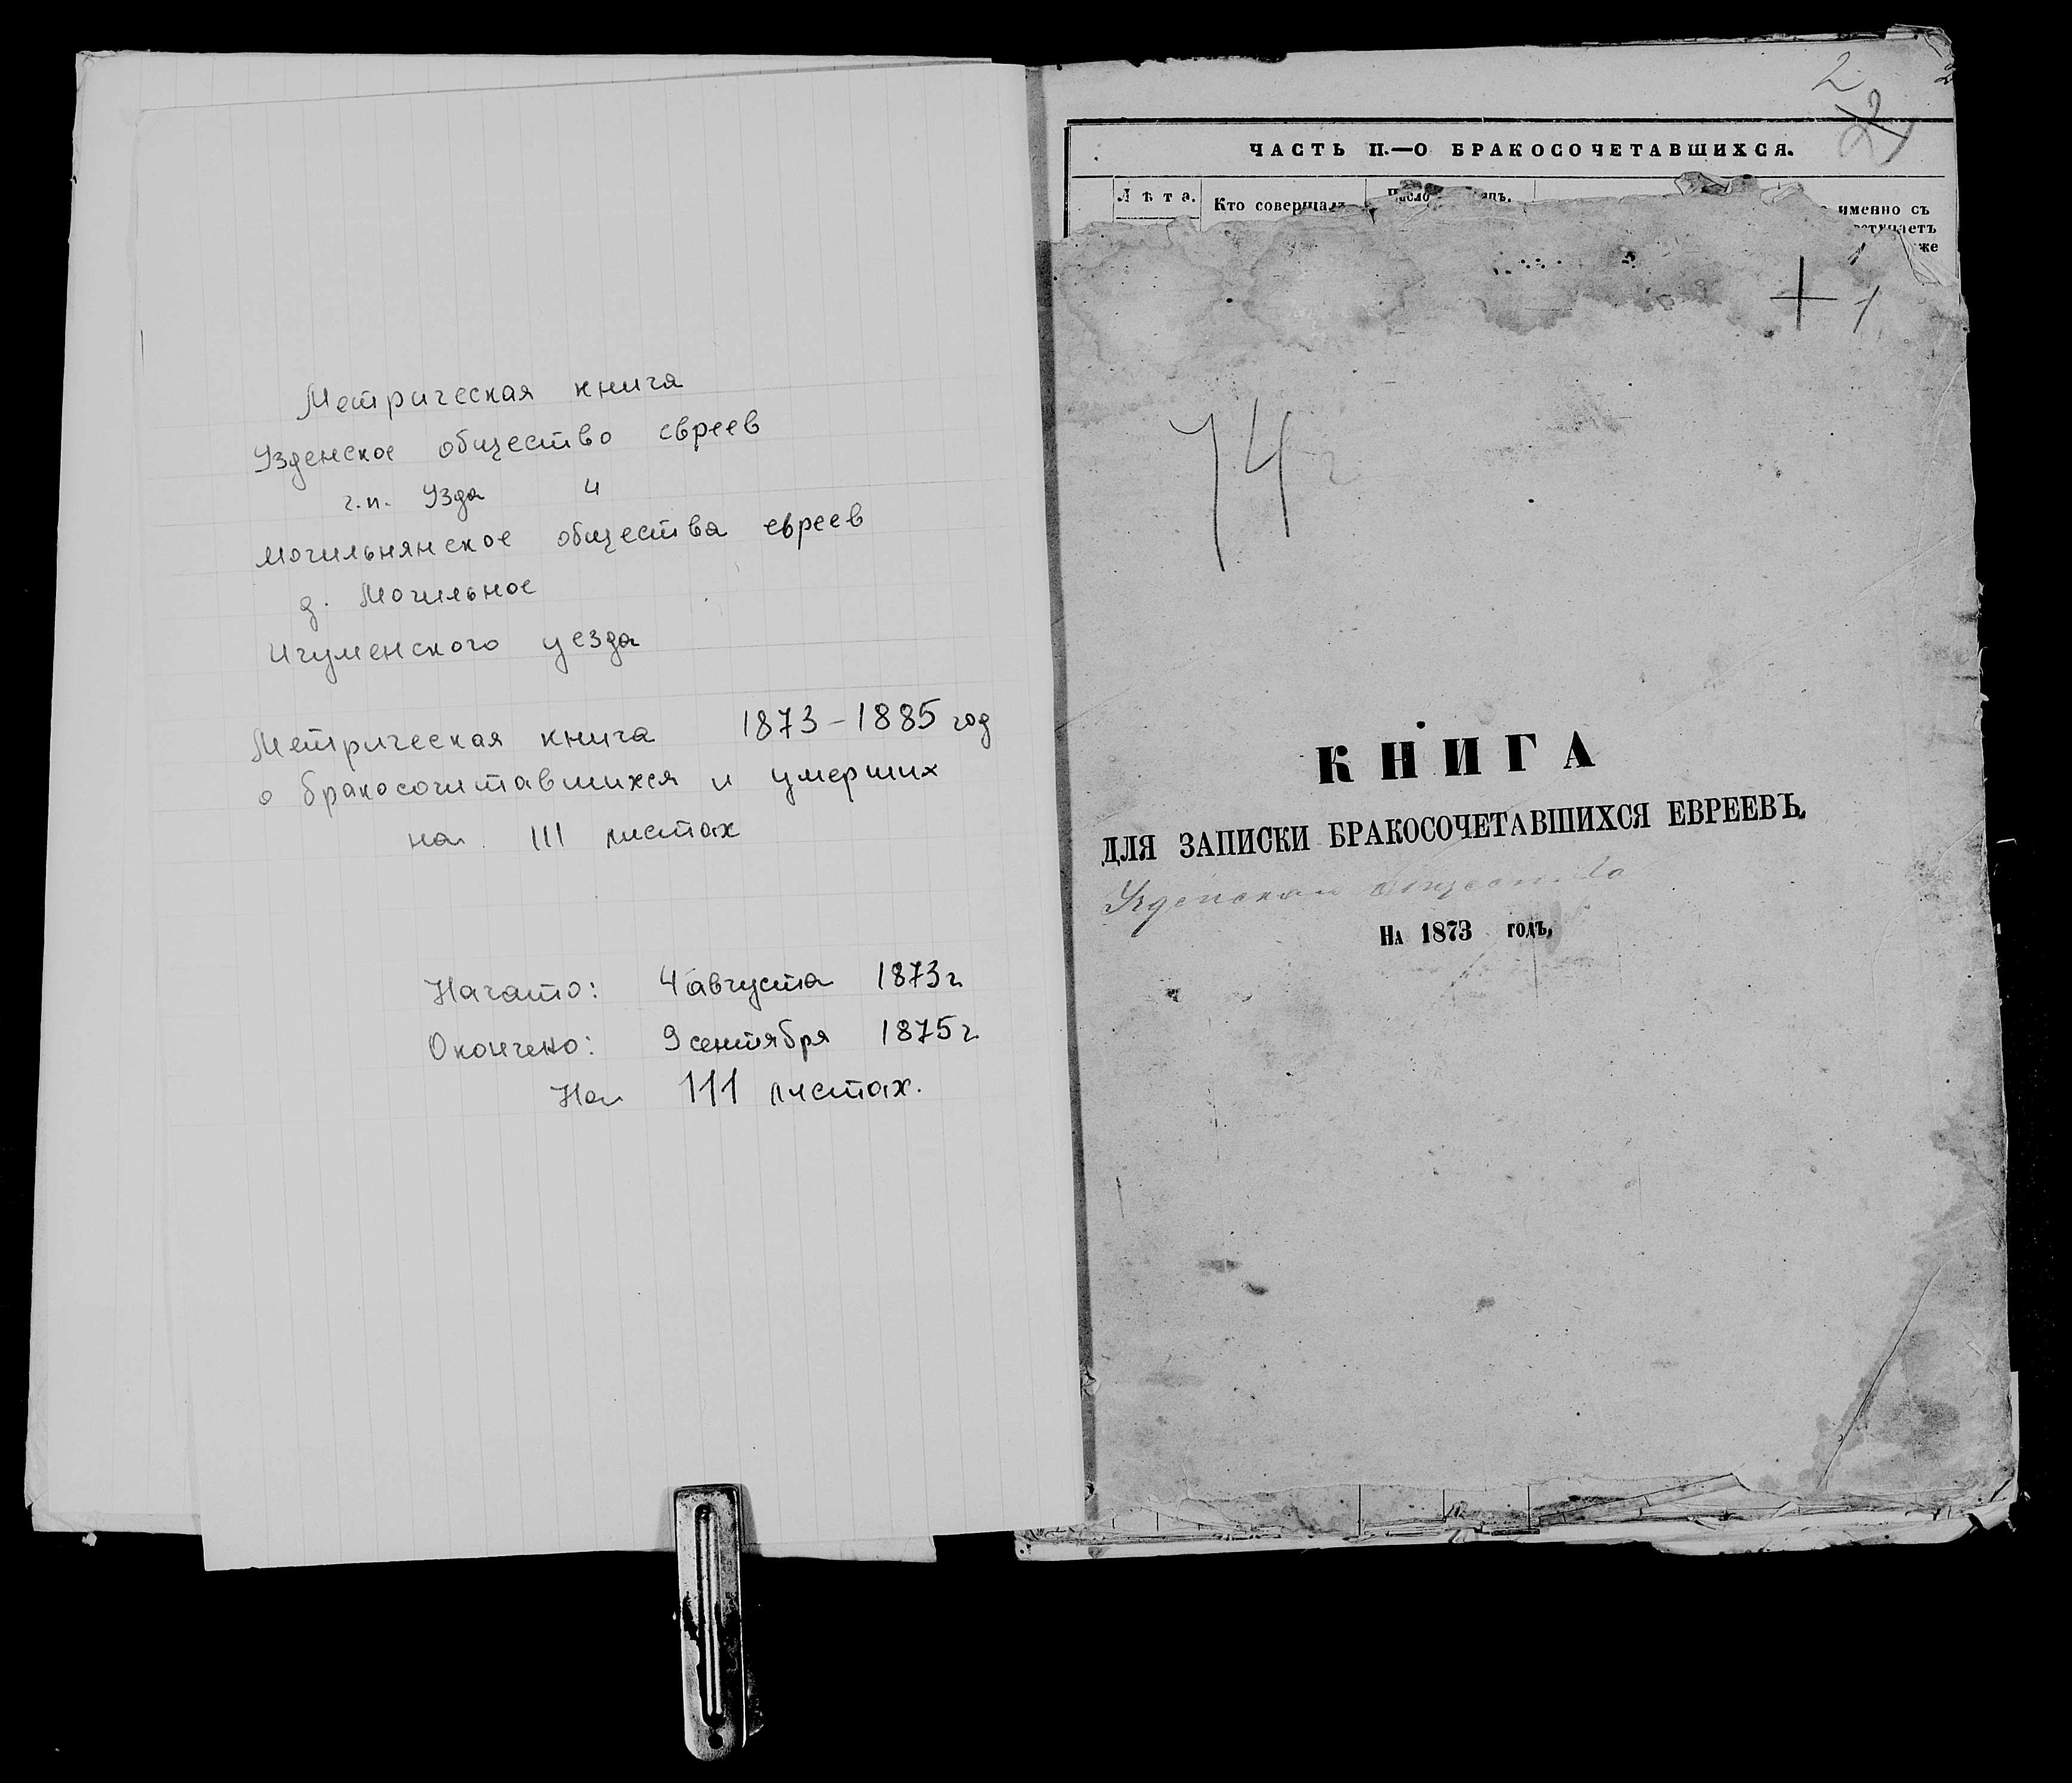 Метрическая книга
Узденское общество евреев
г.п. Узда и
Могильнянское общества евреев
д. Могильное
Игуменского уезда
Метрическая книга 1873-1885 год
о бракосочитавшихся и умерших
на 111 листах
Начато: 4 августа 1873 г
Окончено: 9 сентября 1875 г.
На 111 листах.
2
2
ЧАСТЬ II.—О БРАКОСОЧЕТАВШИХСЯ.
Лѣта. Кто совершалъ
именно съ
же
+ 1
74 г
КНИГА
ДЛЯ ЗАПИСКИ БРАКОСОЧЕТАВШИХСЯ ЕВРЕЕВЪ.
Узденскаго общества
На 1873 годъ.